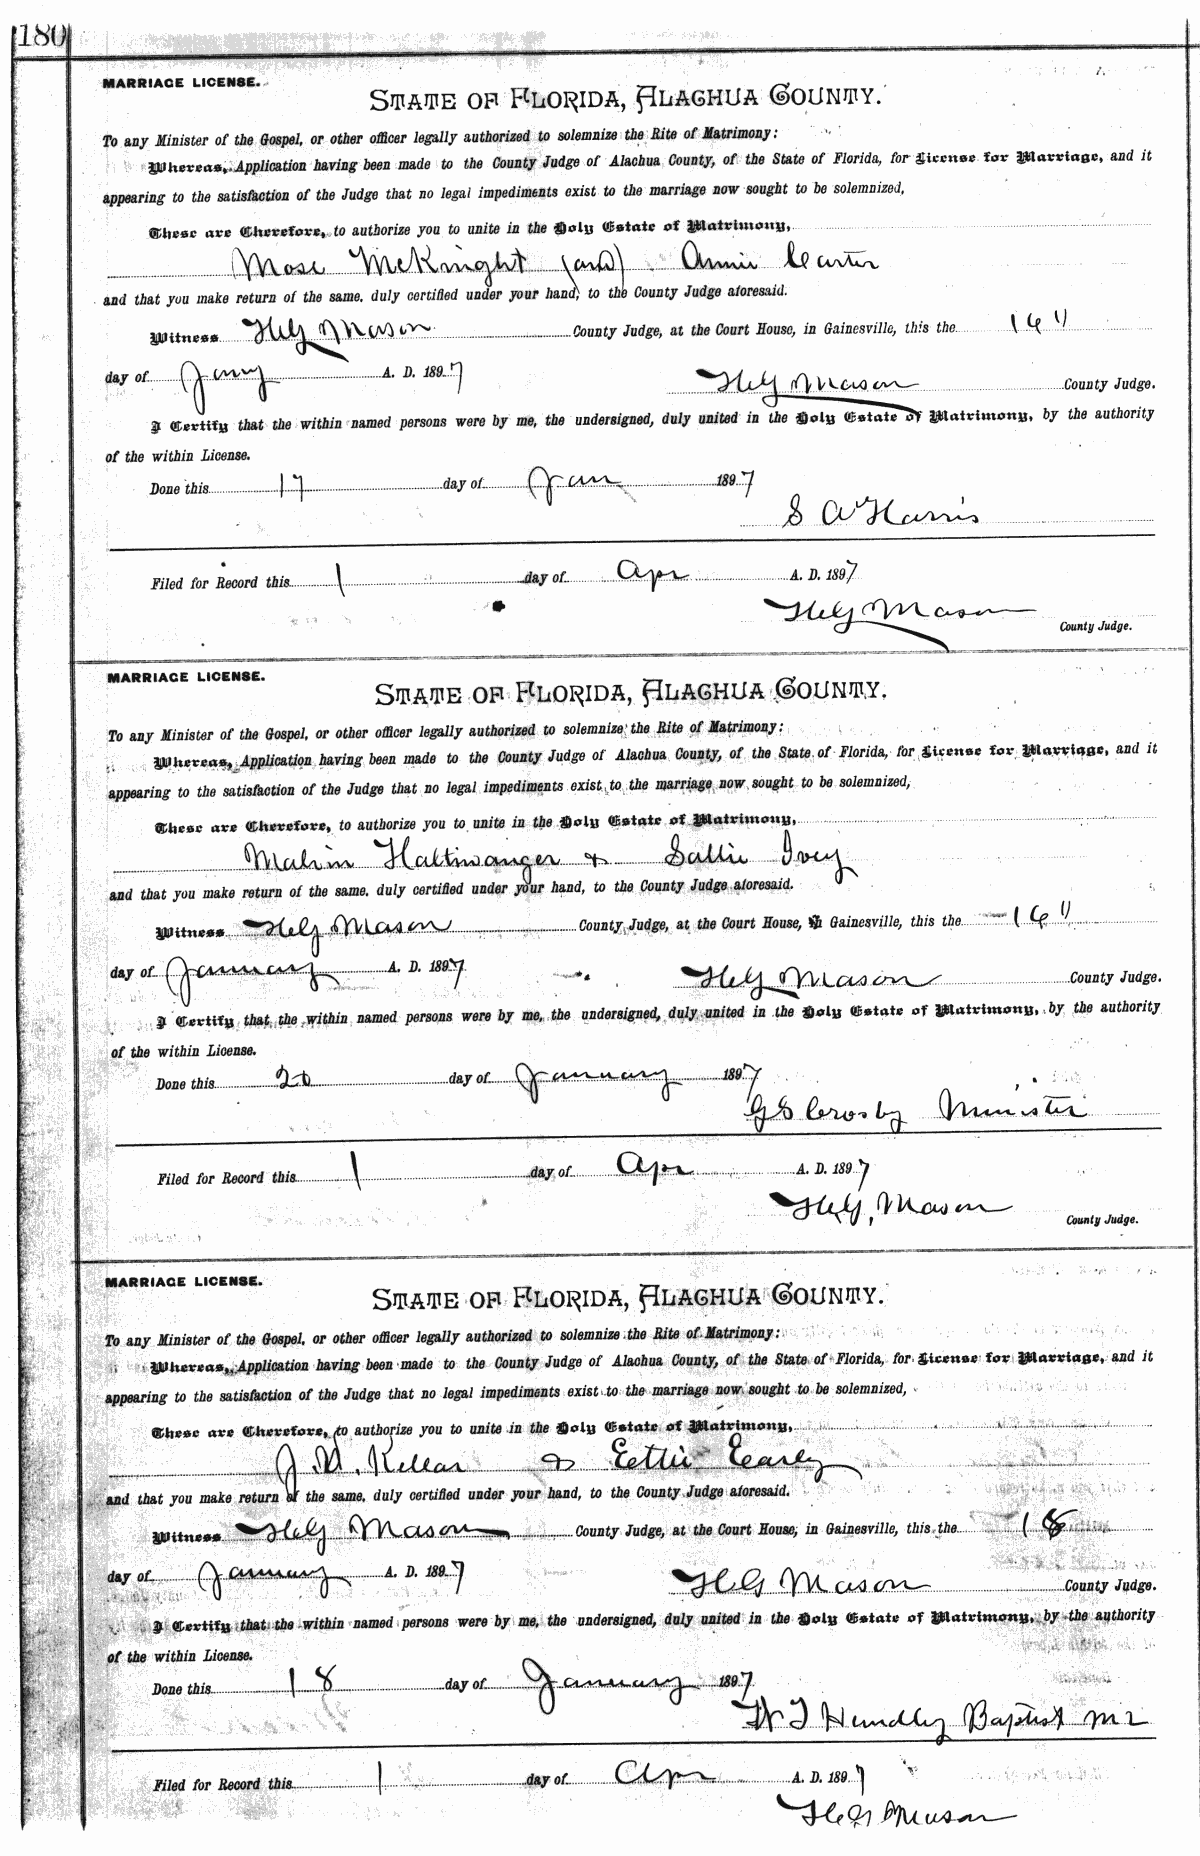 180
MARRIAGE LICENSE.
STATE OF FLORIDA, ALACHUA COUNTY.
To any Minister of the Gospel, or other officer legally authorized to solemnize the Rite of Matrimony:
Whereas, Application having been made to the County Judge of Alachua County, of the State of Florida, for License for Marriage, and it
appearing to the satisfaction of the Judge that no legal impediments exist to the marriage now sought to be solemnized,
These are Therefore, to authorize you to unite in the Holy Estate of Matrimony,
Mose McKnight (and) Annie Carter
and that you make return of the same, duly certified under your hand, to the County Judge aforesaid.
Witness H G Mason County Judge, at the Court House, in Gainesville, this the 16"
day of Jany A. D. 1897
H G Mason County Judge.
I Certify that the within named persons were by me, the undersigned, duly united in the Holy Estate of Matrimony, by the authority
of the within License.
Done this 17 day of Jan 1897
S A Harris
Filed for Record this 1 day of Apr A. D. 1897
H G Mason
County Judge.
MARRIAGE LICENSE.
STATE OF FLORIDA, ALACHUA COUNTY.
To any Minister of the Gospel, or other officer legally authorized to solemnize the Rite of Matrimony:
Whereas, Application having been made to the County Judge of Alachua County, of the State of Florida, for License for Marriage, and it
appearing to the satisfaction of the Judge that no legal impediments exist to the marriage now sought to be solemnized,
These are Therefore, to authorize you to unite in the Holy Estate of Matrimony,
Malvin Haltiwanger & Sallie Ivey
and that you make return of the same, duly certified under your hand, to the County Judge aforesaid.
Witness H G Mason County Judge, at the Court House, in Gainesville, this the 16"
day of January A. D. 1897
H G Mason County Judge.
I Certify that the within named persons were by me, the undersigned, duly united in the Holy Estate of Matrimony, by the authority
of the within License.
Done this 20 day of January 1897
G S Crosby Minister
Filed for Record this 1 day of Apr A. D. 1897
H G, Mason
County Judge.
MARRIAGE LICENSE.
STATE OF FLORIDA, ALACHUA COUNTY.
To any Minister of the Gospel, or other officer legally authorized to solemnize the Rite of Matrimony:
Whereas, Application having been made to the County Judge of Alachua County, of the State of Florida, for License for Marriage, and it
appearing to the satisfaction of the Judge that no legal impediments exist to the marriage now sought to be solemnized,
These are Therefore, to authorize you to unite in the Holy Estate of Matrimony,
J. M. Kellar & Eettie Earley
and that you make return of the same, duly certified under your hand, to the County Judge aforesaid.
Witness H G Mason County Judge, at the Court House, in Gainesville, this the 18
day of January A. D. 1897
H G Mason County Judge.
I Certify that the within named persons were by me, the undersigned, duly united in the Holy Estate of Matrimony, by the authority
of the within License.
Done this 18 day of January 1897
W T Hundley Baptist
Filed for Record this 1 day of Apr A. D. 1897
H G Mason